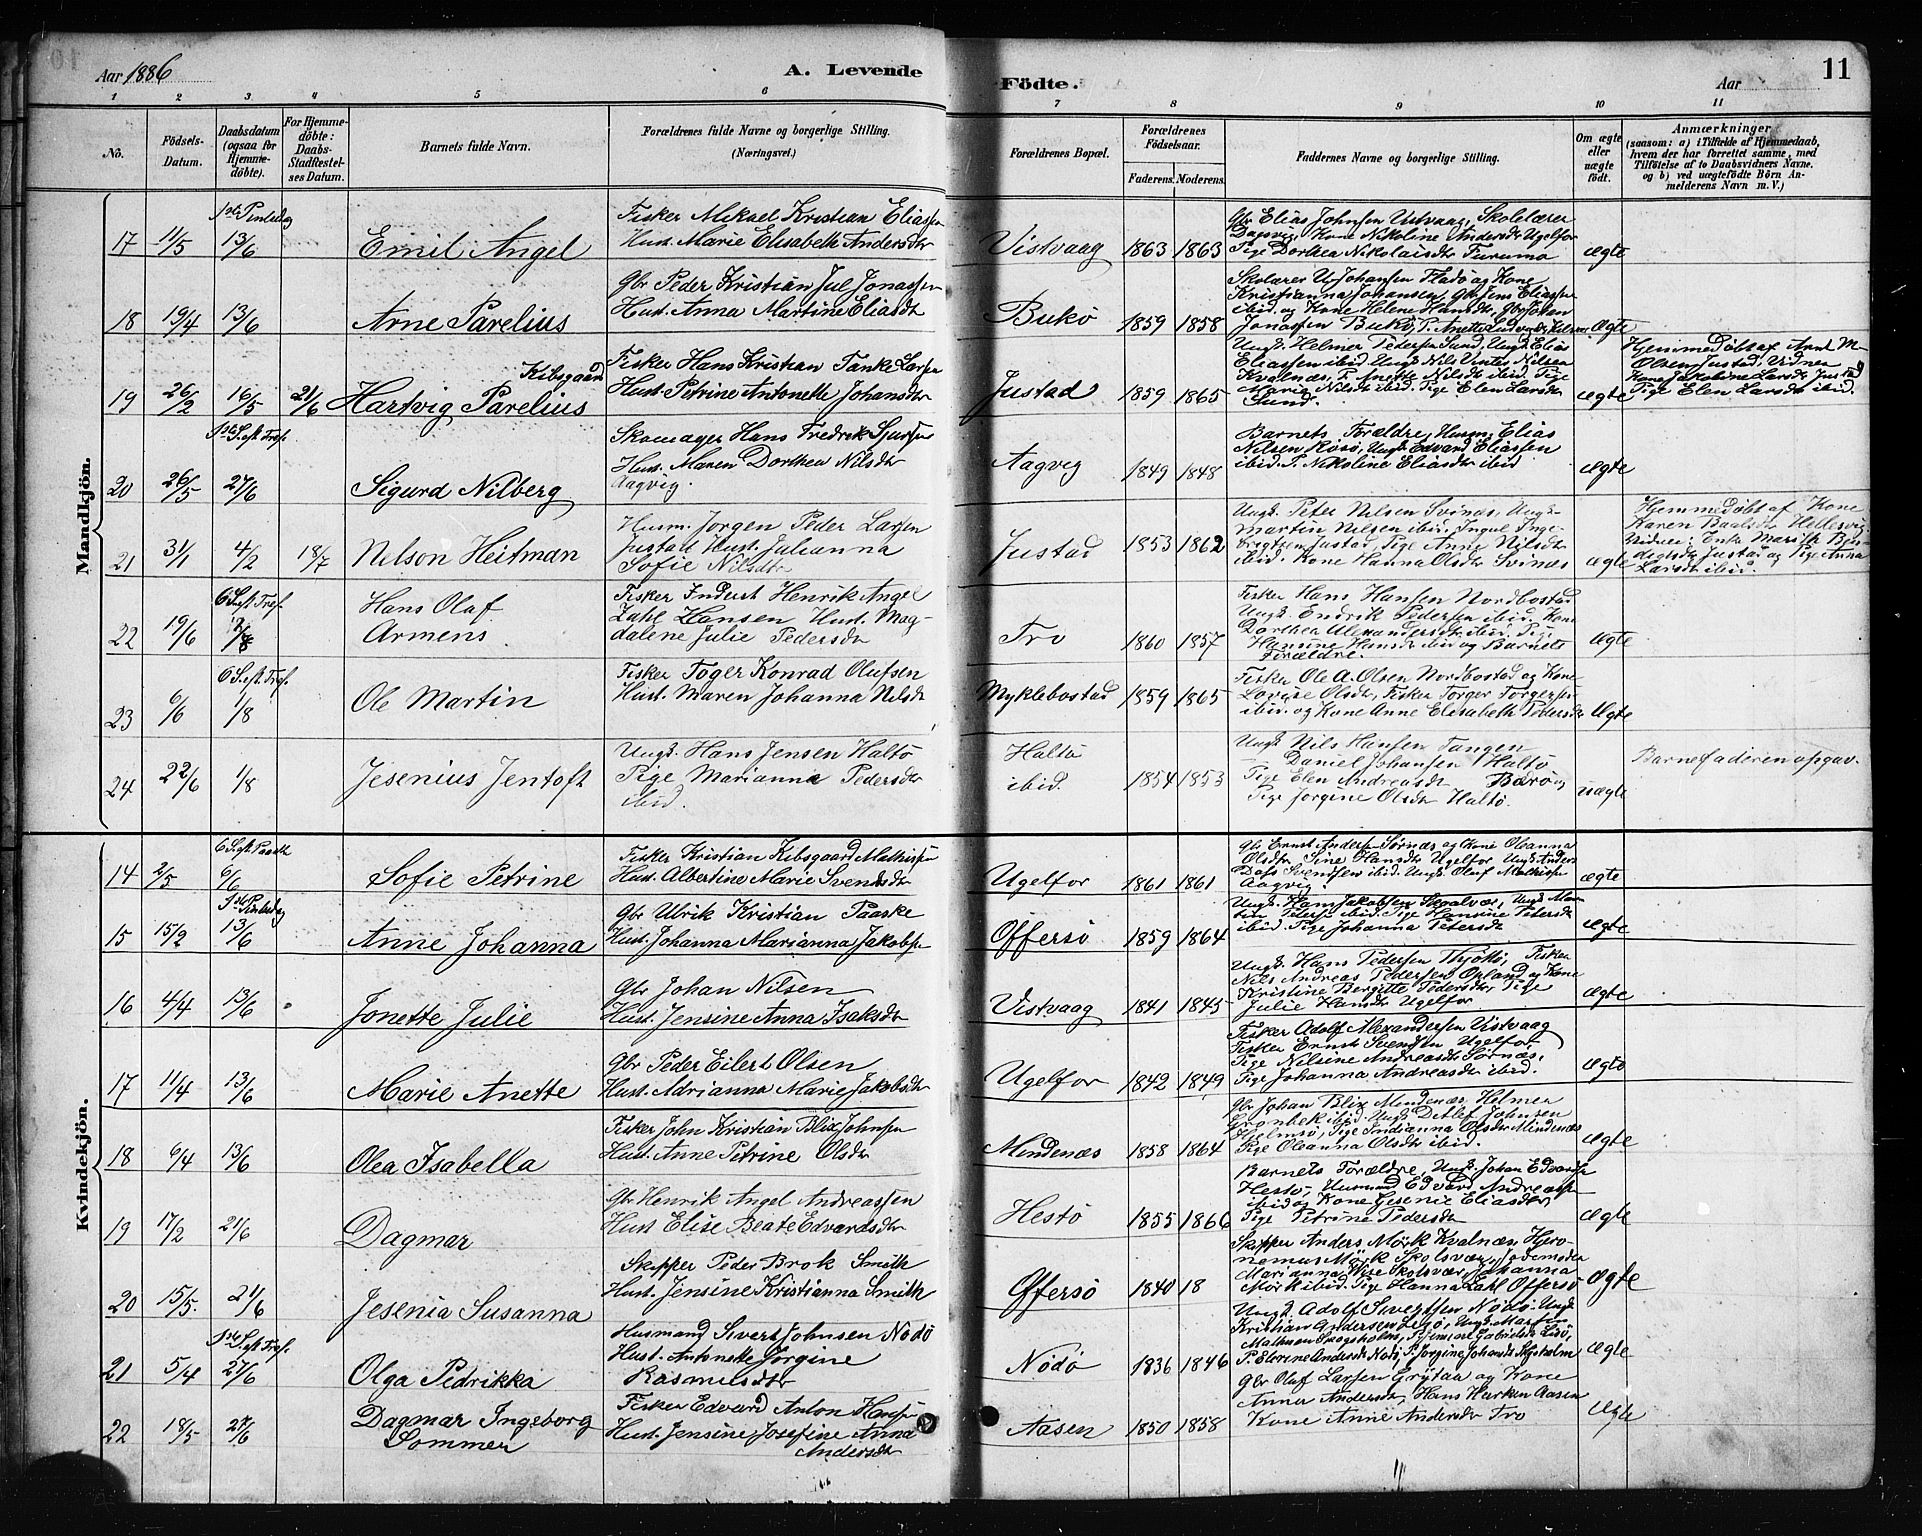 Aar 1886
A. Levende
Födte.
Aar
11
1 2 3 4 5 6 7 8 9 10 11
No.
Födsels-Datum.
Daabsdatum (ogsaa for Hjemme-döbte).
For Hjemme-döbte: Daabs-Stadfæstel-ses Datum.
Barnets fulde Navn.
Forældrenes fulde Navne og borgerlige Stilling. (Næringsvei.)
Forældrenes Bopæl.
Forældrenes Födselsaar.
Faderens. Moderens.
Faddernes Navne og borgerlige Stilling.
Om ægte eller uægte födt.
Anmærkninger (saasom: a) i Tilfælde af Hjemmedaab, hvem der har forrettet samme, med Tilföielse af to Daabsvidners Navne. og b) ved uægtefödte Börn An-melderens Navn m. V.)
Mandkjön.
17 11/5 1ste Pintsedag 13/6 Emil Angel
Fisker Mikael Kristian Eliassen
Hust. Marie Elisabeth Andersdtr
Vistvaag 1863 1863
Gbr Elias Johnsen Vistvaag, Skolelærer
Dagsvig, Kone Nikoline Andersdtr Ugelfor
Pige Dorthea Nikolaisdtr Furumo
ægte
18 19/4 13/6 Arne Parelius
Gbr Peder Kristian Jul Jonassen
Hust. Anna Martine Eliasdtr
Bukö 1859 1858
Skolærer U Johansen Fladö og Kone
Kristianna Johansen, Gbr Jens Eliassen
ibid. og Kone Helene Hansdtr, Gbr Johan
Jonassen Bukö, P. Anette Ludvigsdtr
Ægte
19 26/2 16/5 21/6 Hartvig Parelius Kibsgaard
Fisker Hans Kristian Tanke Larsen
Hust. Petrine Antonette Johansdtr
Justad 1859 1865
Ungk. Helmer Pedersen Sund, Ungk. Elias
Eliassen ibid. Ungk Nils Vinter Nilsen
Kvalnæs, P. Anette Nilsdtr ibid. Pige
Maria Nilsdtr ibid. Pige Elen Larsdtr
Sund.
ægte
Hjemmedöbt af Arnt M.
Olsen Justad, Vidner
Kone Jakobine Larsdtr Justad
Pige Elen Larsdtr ibid.
20 26/5 1ste S. eft. Tref. 27/6 Sigurd Nilberg
Skomager Hans Fredrik Sjursen
Hust. Maren Dorthea Nilsdtr
Aagvig.
Aagvig 1849 1848
Barnets Forældre, Husm. Elias
Nilsen Rösö, Ungk Edvard Eliassen
ibid. P. Nikoline Eliasdtr ibid
ægte
21 31/1 4/2 18/7 Nelson Heitman
Husm. Jorgen Peder Larsen
Justad Hust. Julianna
Sofie Nilsdtr
Justad 1853 1862
Ungk. Peter Nilsen Svinæs, Ungk.
Martin Nilsen ibid, Ingul Inge-
brigtsen Justad, Pige Anne Nilsdtr
ibid. Kone Hanna Olsdtr Svinæs
ægte
Hjemmedöbt af Kone
Karen Baalsdtr Hellesvig
Vidner: Enke Marith
Justad og Pige Anna
Larsdtr ibid.
22 19/6 6 S. eft Tref. 1/8 Hans Olaf
Armens
Fisker Inderst Henrik Angel
Zahl Hansen Hust. Mag-
dalene Julie Pedersdtr
Tro 1860 1857
Fisker Hans Hansen Nordbostad
Ungk. Endrik Pedersen ibid. Kone
Dorthea Alexandersdtr ibid. Pige
Hansine Hansdtr ibid og Barnets
Forældre.
ægte
23 6/6 6 S. eft. Tref. 1/8 Ole Martin
Fisker Toger Konrad Olufsen
Hust. Maren Johanna Nilsdtr
Myklebostad 1859 1865
Fisker Ole A. Olsen Nordbostad og Kone
Lovise Olsdtr, Fisker Torger Torgersen
ibid. og Kone Anne Elisabeth Pedersdtr
Ægte
24 22/6 1/8 Jesenius Jentoft
Ungk. Hans Jensen Haltö
Pige Marianna Pedersdtr
ibid.
Haltö
ibid. 1854 1853
Ungk Nils Hansen Tangen
Daniel Johansen Haltö
Pige Elen Andreasdtr Barö og
Pige Jorgine Olsdtr Haltö.
uægte
Barnefaderen opgav.
Kvindekjön.
14 2/5 6 S. eft. Paaske 6/6 Sofie Petrine
Fisker Kristian Kibsgaard Mathisen
Hust. Albertine Marie Svendsdtr
Ugelfor 1861 1861
Gbr Ernst Andersen Sörnæs og Kone Oleanna
Olsdtr Sine Hansdtr Ugelfor Ungk Anders
Dass Svendsen ibid. Ungk. Oluf Mathisen
Aagvig.
ægte
15 15/2 1ste Pintsedag 13/6 Anne Johanna
Gbr Ulrik Kristian Paaske
Hust. Johanna Marianna Jakobsen
Offersö 1859 1864
Ungk. Hans Jakobsen Skaalvær, Ungk Mar-
tin Petersen ibid. Pige Hansine Petersdtr
ibid. Pige Johanna Petersdtr
Ægte
16 4/4 13/6 Jonette Julie
Gbr Johan Nilsen
Hust. Jensine Anna Isaksdtr
Vistvaag 1841 1845
Ungk. Hans Pedersen Thjöttö, Fisker
Nils Andreas Pedersen Opland og Kone
Kristine Bergitte Pedersdtr Pige
Julie Hansdtr Ugelfor
Ægte
17 11/4 13/6 Marie Anette
Gbr Peder Eilert Olsen
Hust. Adrianna Marie Jakobsdtr
Ugelfor 1842 1849
Fisker Adolf Alexandersen Vistvaag
Fisker Ernst Svendsen Ugelfor
Pige Nilsine Andreasdtr Sörnæs,
Pige Johanna Andreasdtr ibid.
Ægte
18 6/4 13/6 Olea Isabella
Fisker John Kristian Blix Johnsen
Hust. Anne Petrine Olsdtr
Mindenæs 1858 1864
Gbr Johan Blix Mindenæs, Helmer
Grönbek ibid. Ungk Detlef Johnsen
Hjelmsö, Pige Indianna Olsdtr Mindenæs
Pige Oleanna Olsdtr ibid.
Ægte
19 17/2 21/6 Dagmar
Gbr Henrik Angel Andreassen
Hust Elise Beate Edvardsdtr
Hestö 1855 1866
Barnets Forældre, Ungk. Johan Edvardsen
Hestö, Husmand Edvard Andreassen
ibid og Kone Gesenie Eliasdtr,
Pige Petrine Pedersdtr
Ægte
20 15/5 21/6 Jesenia Susanna
Skipper Peder Brok Smith
Hust. Jensine Kristianna Smith
Offersö 1840 18
Skipper Anders Mörk Kvalnæs, Hjero-
nemus Mörk Skolsvær, Jodemoder
Marianna Wise Skolsvær, Johanna
Mörk ibid. Pige Hanna Zahl Offersö
Ægte
21 5/4 1ste S. eft Tref. 27/6 Olga Pedrikka
Husmand Sivert Johnsen Nödö
Hust. Antonette Jorgine
Rasmusdtr
Nödö 1836 1846
Ungk. Adolf Sivertsen Nödö, Ungk
Kristian Andersen Ungk. Martin
P. Elvrine Andersdtr Nödö, P. Jorgine Johansdtr
Ægte
22 18/5 27/6 Dagmar Ingeborg
Sommer
Fisker Edvard Anton Hansen
Hust. Jensine Josefine Anna
Andersdtr
Aasen 1850 1858
Gbr Oluf Larsen Grytaa og Kone
Anna Andersdtr, Hans Harken Aasen
Kone Anne Andersdtr Tro
Ægte